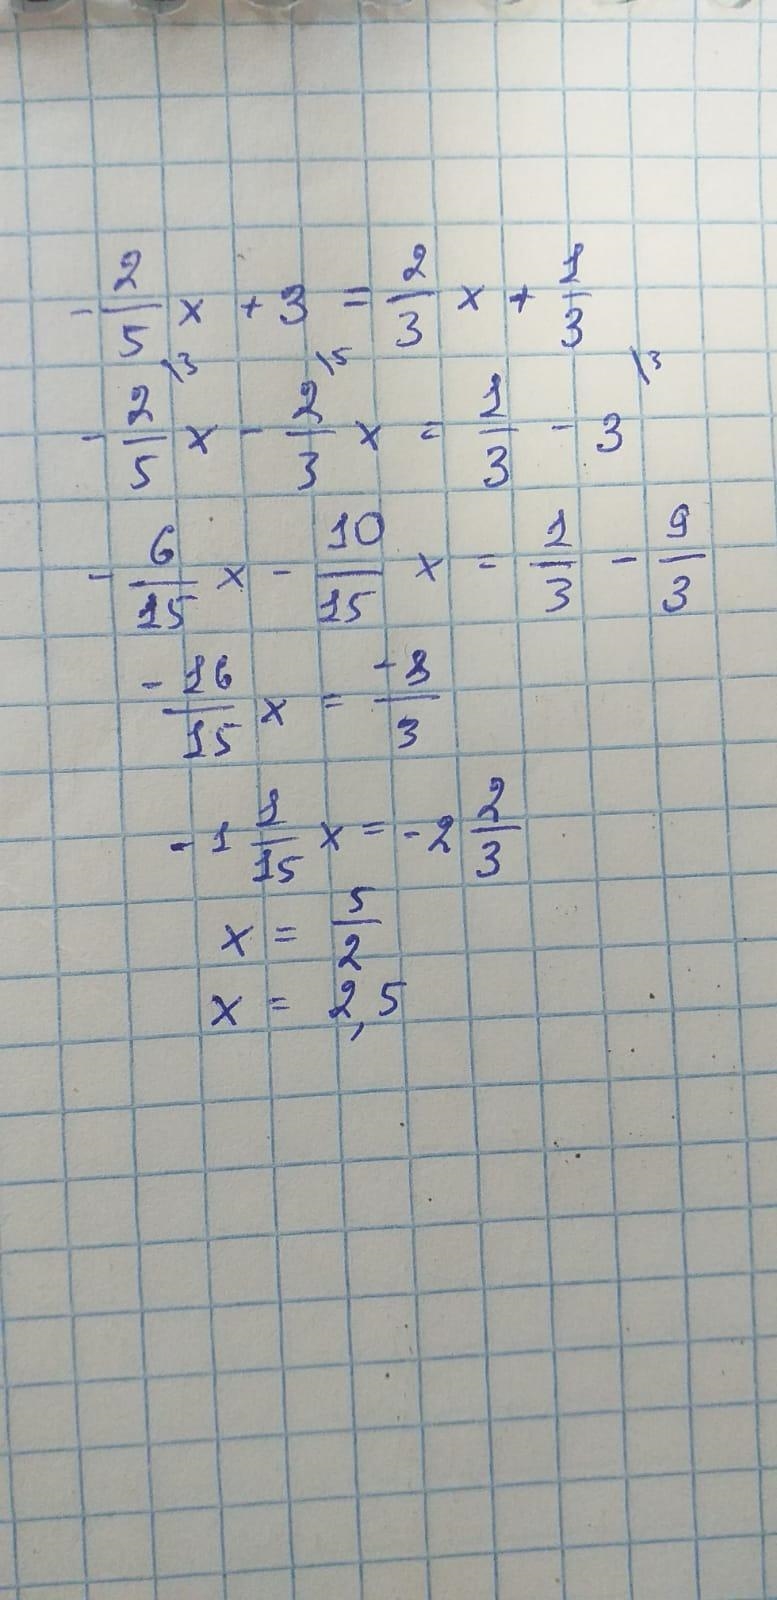 - 2/5 x + 3 = 2/3 x + 1/3
- 2/5 \3 x - 2/3 \5 x = 1/3 - 3 \3
- 6/15 x - 10/15 x = 1/3 - 9/3
-16/15 x = -8/3
- 1 1/15 x = - 2 2/3
x = 5/2
x = 2,5